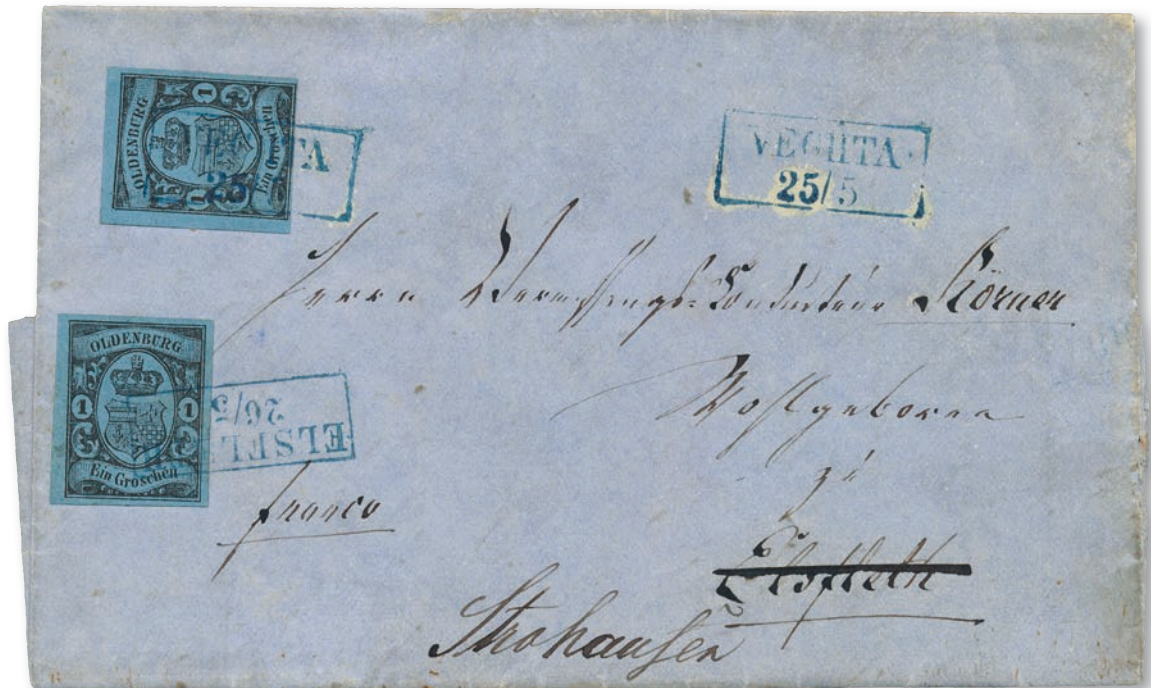 OLDENBURG
1
Ein Groschen
TA
25
VECHTA
25/5
Herrn Vermessungs-Conducteur Körner
Wohlgeboren
zu
Elsfleth
Strohausen
OLDENBURG
1 1
Ein Groschen
ELSFL
26/5
franco